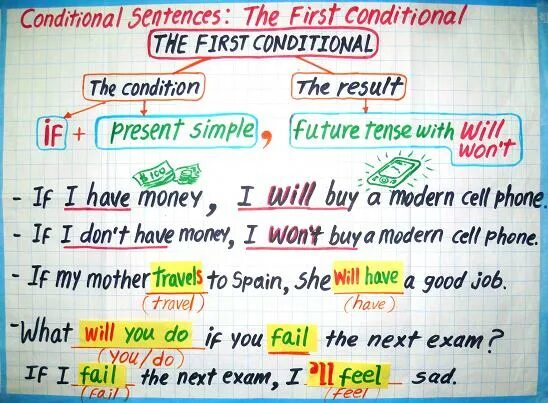 Conditional Sentences: The First Conditional
THE FIRST CONDITIONAL
The condition The result
if + present simple, future tense with will
won't
$100
- If I have money, I will buy a modern cell phone.
- If I don't have money, I won't buy a modern cell phone.
- If my mother travels to Spain, she will have a good job.
(travel) (have)
- What will you do if you fail the next exam?
(you/do)
If I fail the next exam, I 'll feel sad.
(fail) (feel)